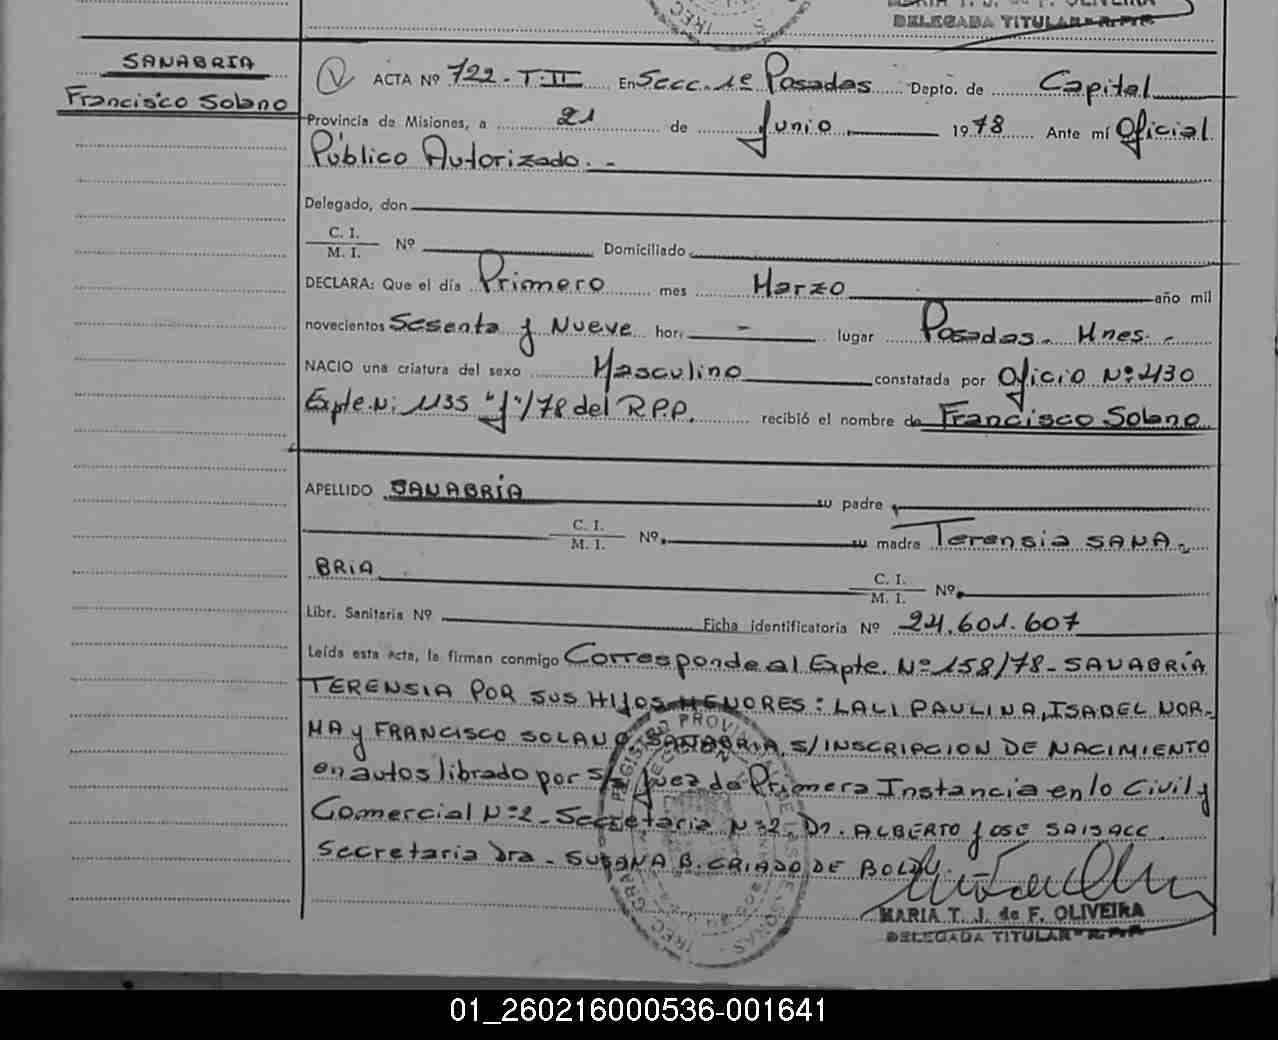 DELEGADA TITULAR R.P.P.
SANABRIA
Francisco Solano
ACTA Nº 722 - T. II En Secc. 1º Posadas Depto. de Capital
Provincia de Misiones, a 21 de Junio 1978 Ante mí Oficial
Público Autorizado. -
Delegado, don
C. I.
M. I.
Nº Domiciliado
DECLARA: Que el día Primero mes Marzo año mil
novecientos Sesenta y Nueve hor. - lugar Posadas - Mnes. -
NACIO una criatura del sexo Masculino constatada por Oficio Nº: 430
Expte. N: 1135 "J"/78 del R.P.P. recibió el nombre de Francisco Solano
APELLIDO SANABRÍA su padre
C. I.
M. I.
Nº su madre Terensia SANA-
BRIA C. I.
M. I.
Nº
Libr. Sanitaria Nº Ficha identificatoria Nº 24.601.607
Leída esta acta, la firman conmigo Corresponde al Expte. Nº 158/78 - SANABRÍA
TERENSIA POR SUS HIJOS MENORES: LALI PAULINA, ISABEL NOR-
MA y FRANCISCO SOLANO SANABRIA S/INSCRIPCION DE NACIMIENTO
en autos librado por S/ Juez de Primera Instancia en lo Civil y
Comercial Nº 2 - Secretaria Nº 2 - Dr. ALBERTO JOSE
Secretaria Dra - SUSANA B. CRIADO DE
MARIA T. J. de F. OLIVEIRA
DELEGADA TITULAR R.P.P.
01_260216000536-001641